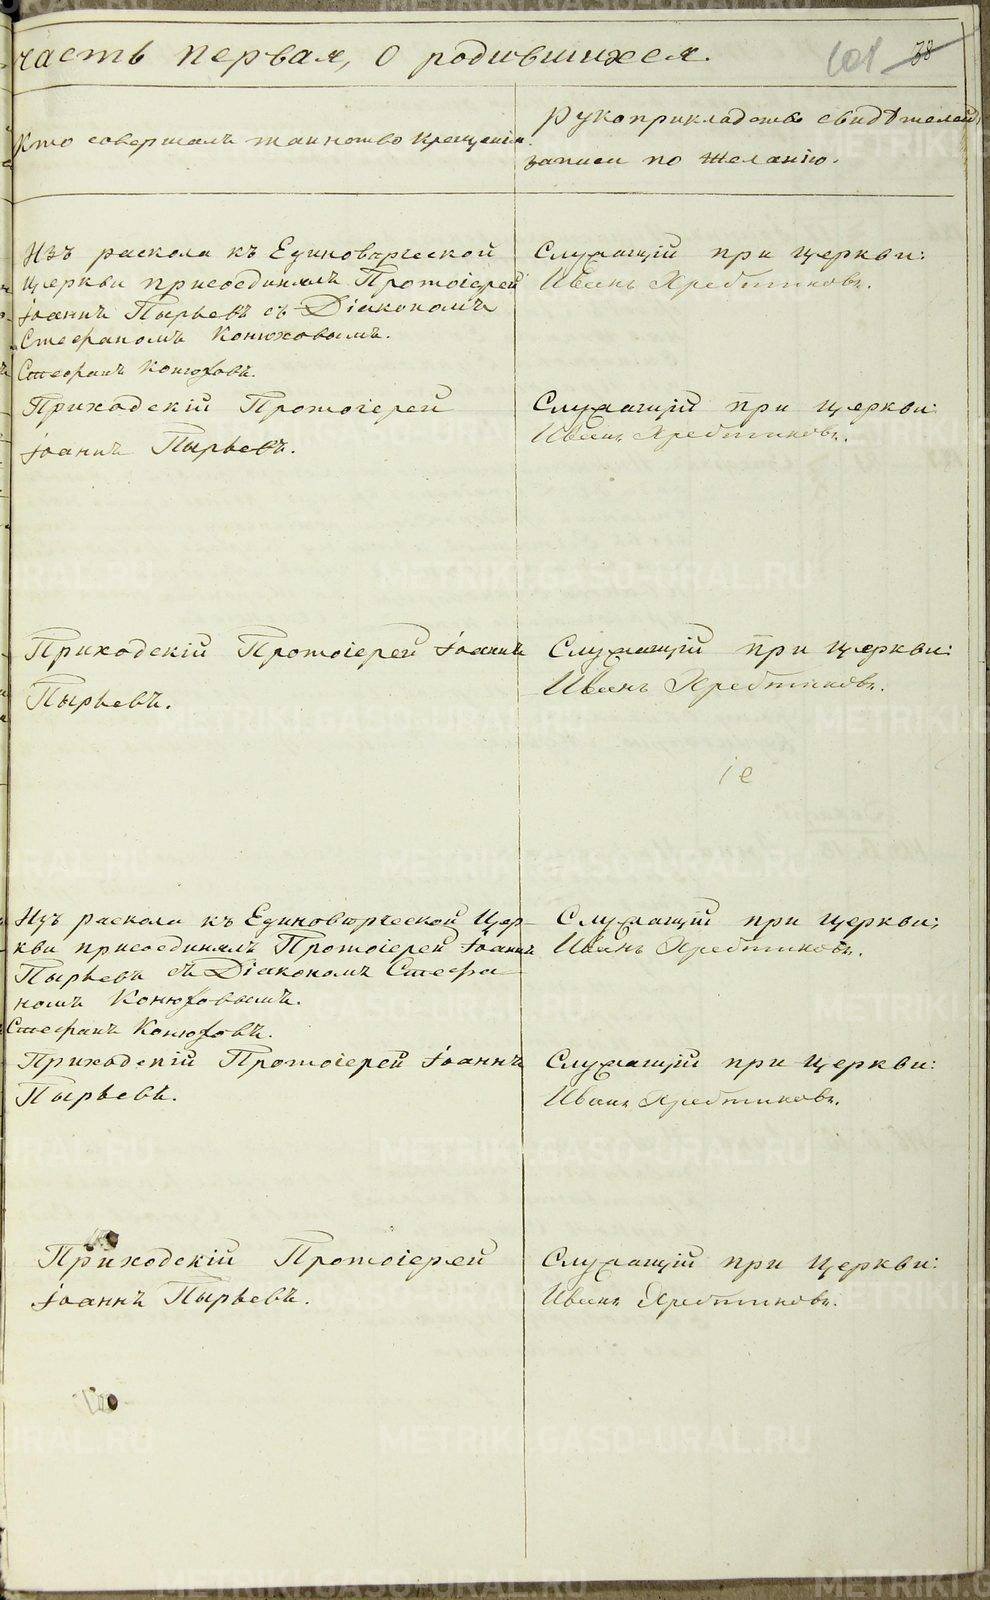 часть первая, о родившихся.
101 78
Кто совершалъ таинство крещенія.
Рукоприкладство свидѣтелей
записи по желанію.
Изъ раскола къ Единовѣрческой
Церкви присоединялъ Протоіерей
Іоаннъ Пырьевъ съ Діакономъ
Стефаномъ Конюховымъ.
Стефанъ Конюховъ.
Служащій при церкви:
Иванъ Хребтиковъ.
Приходскій Протоіерей
Іоаннъ Пырьевъ.
Служащій при церкви:
Иванъ Хребтиковъ.
Приходскій Протоіерей Іоаннъ
Пырьевъ.
Служащій при церкви:
Иванъ Хребтиковъ.
Изъ раскола къ Единовѣрческой Цер-
кви присоединялъ Протоіерей Іоаннъ
Пырьевъ съ Діакономъ Стефа-
номъ Конюховымъ.
Стефанъ Конюховъ.
Служащій при церкви;
Иванъ Хребтиковъ.
Приходскій Протоіерей Іоаннъ
Пырьевъ.
Служащій при церкви:
Иванъ Хребтиковъ.
Приходскій Протоіерей
Іоаннъ Пырьевъ.
Служащій при церкви:
Иванъ Хребтиковъ.
METRIKI.GASO-URAL.RU